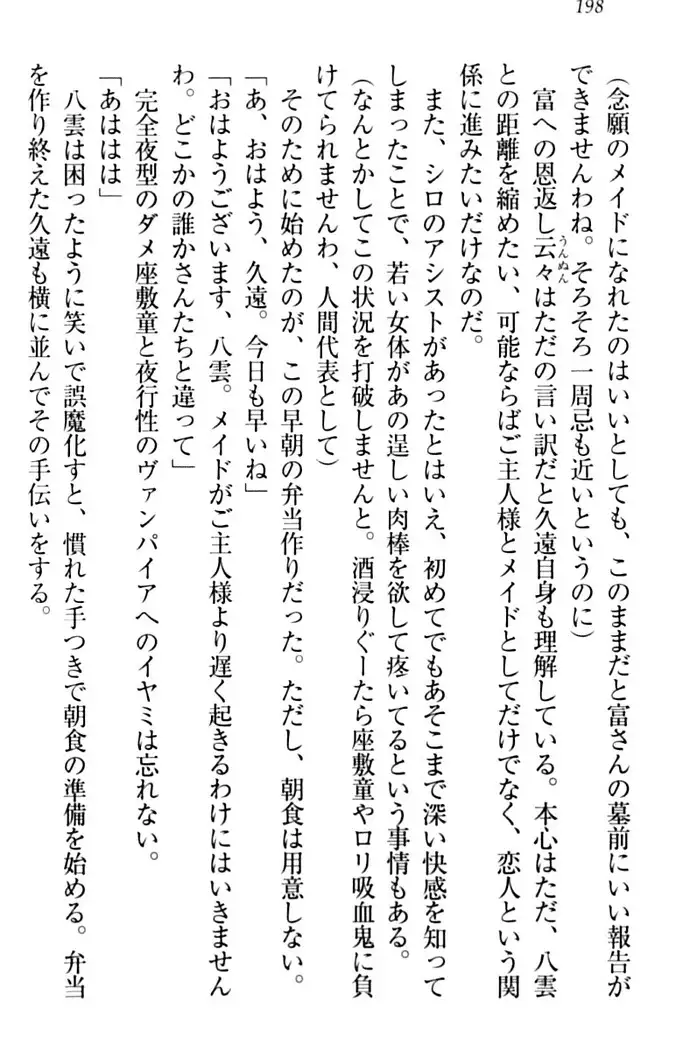 198
(念願のメイドになれたのはいいとしても、このままだと富さんの墓前にいい報告が
できませんわね。そろそろ一周忌も近いというのに)
富への恩返し云々はただの言い訳だと久遠自身も理解している。本心はただ、八雲
うんぬん
との距離を縮めたい、可能ならばご主人様とメイドとしてだけでなく、恋人という関
係に進みたいだけなのだ。
また、シロのアシストがあったとはいえ、初めてでもあそこまで深い快感を知って
しまったことで、若い女体があの逞しい肉棒を欲して疼いてるという事情もある。
(なんとかしてこの状況を打破しませんと。酒浸りぐーたら座敷童やロリ吸血鬼に負
けてられませんわ、人間代表として)
そのために始めたのが、この早朝の弁当作りだった。ただし、朝食は用意しない。
「あ、おはよう、久遠。今日も早いね」
「おはようございます、八雲。メイドがご主人様より遅く起きるわけにはいきません
わ。どこかの誰かさんたちと違って」
完全夜型のダメ座敷童と夜行性のヴァンパイアへのイヤミは忘れない。
「あははは」
八雲は困ったように笑いで誤魔化すと、慣れた手つきで朝食の準備を始める。弁当
を作り終えた久遠も横に並んでその手伝いをする。